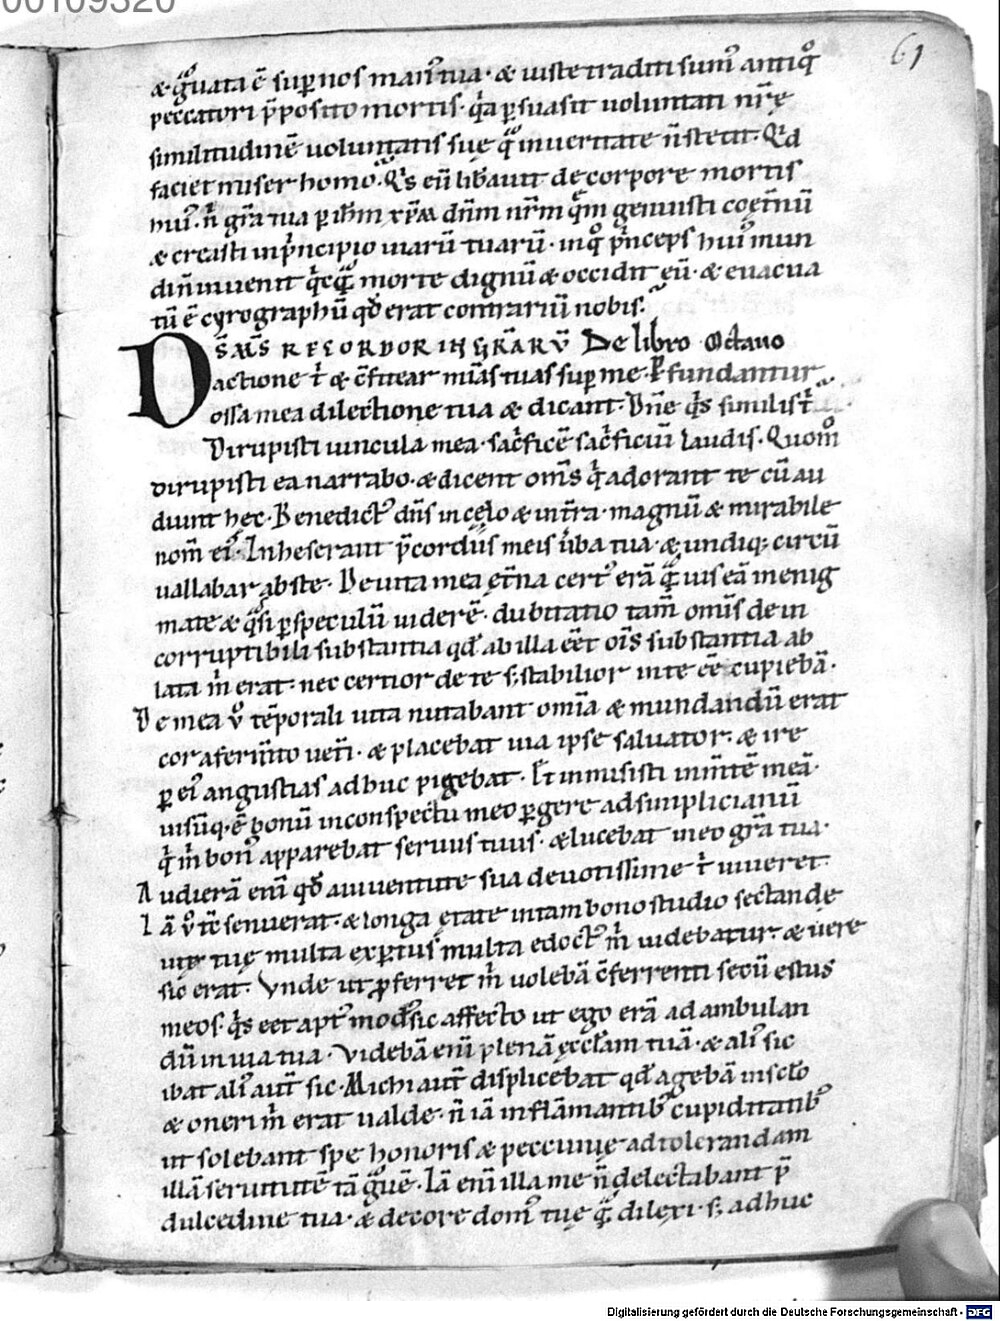 00109320
61
& g̊uata ē sup nos man᷒ tua · & iuste traditi sum᷒ antiq̊
peccatori p̄posito mortis · q̓a p̱suasit uoluntati nr̄ę
similitudinē uoluntatis suę q̊ in ueritate n̄ stetit · Q̓d
faciet miser homo · Q̓s eū lib̄auit de corpore mortis
hui᷒ · n̓ gr̄a tua p̱ ih̄m xp̄m dn̄m nr̄m q̄m genuisti coęt̄nū
& creasti in p̓ncipio uiarū tuarū · in q̊ p̓nceps hui᷒ mun
di n̄ inuenit q̓cq̄ morte dignū & occidit eū · & euacua
tū ē cyrographū qd̄ erat contrariū nobis ·
DS̄ M̄S RECORDOR IN GR̄ARŪ De libro Octauo
actione t̓ & c̄fitear mīas tuas sup me · P̱fundantur
ossa mea dilectione tua & dicant · Dn̄e q̓s similis t̓
Dirupisti uincula mea · sac̓ficē sac̓ficiū laudis · Quom̊
dirupisti ea narrabo · & dicent om̄s q̓ adorant te cū au
diunt hęc · Benedict᷒ dn̄s in cęlo & in t̄ra · magnū & mirabile
nom̄ ei᷒ · Inheserant p̄cordiis meis u̓ba tua · & undiq; circū
uallabar abs te · De uita mea ęt̄na cert᷒ erā q̄uis eā in enig
mate & q̊si p̱ speculū uiderē · dubitatio tam̄ omīs de in
corruptibili substantia qd̄ ab illa eēt oīs substantia ab
lata m̓ erat · nec certior de te s; stabilior in te eē cupiebā ·
De mea u̓ tēporali uita nutabant omīa & mundandū erat
cor a ferm̄to uet̓i · & placebat uia ipse saluator · & ire
p̱ ei᷒ angustias adhuc pigebat · Et inmisisti in m̄tē meā ·
uisūq; ē bonū in conspectu meo p̱gere ad simplicianū
q̓ m̓ bon᷒ apparebat seruus tuus · & lucebat in eo gr̄a tua ·
Audierā enī qd̄ a iuuentute sua deuotissime t̓ uiueret ·
Iā u̓ tc̄ senuerat · & longa ętate in tam bono studio sectande
uitę tuę multa exp̱tus multa edoct᷒ m̓ uidebatur · & uere
sic erat · Vnde ut p̱ferret m̓ uolebā c̄ferrenti secū estus
meos · q̓s eēt apt᷒ mod᷒ sic affecto ut ego erā ad ambulan
dū in uia tua · Videbā enī plenā ęccl̄am tuā · & ali᷒ sic
ibat ali᷒ aut̄ sic · Michi aut̄ displicebat qd̄ agebā in sc̄lo
& oneri m̓ erat ualde · n̄ iā inflāmantib᷒ cupiditatib᷒
ut solebant spe honoris & peccunię ad tolerandam
illā seruitutē tā g̊uē · Iā enī illa me n̄ delectabant p̄
dulcedine tua · & decore dom᷒ tuę q̄ dilexi · s; adhuc
Digitalisierung gefördert durch die Deutsche Forschungsgemeinschaft - DFG